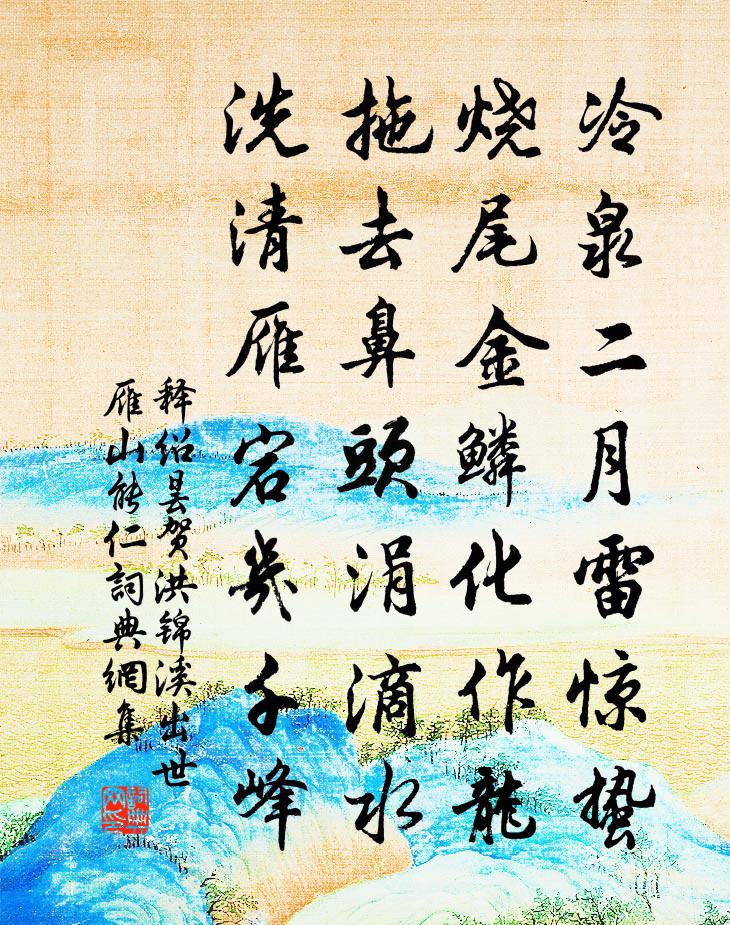 冷泉二月雷惊蛰
烧尾金鳞化作龍
拖去鼻頭涓滴水
洗清雁宕幾千峰
释绍昙贺洪锦溪出世
雁山能仁詞典網集